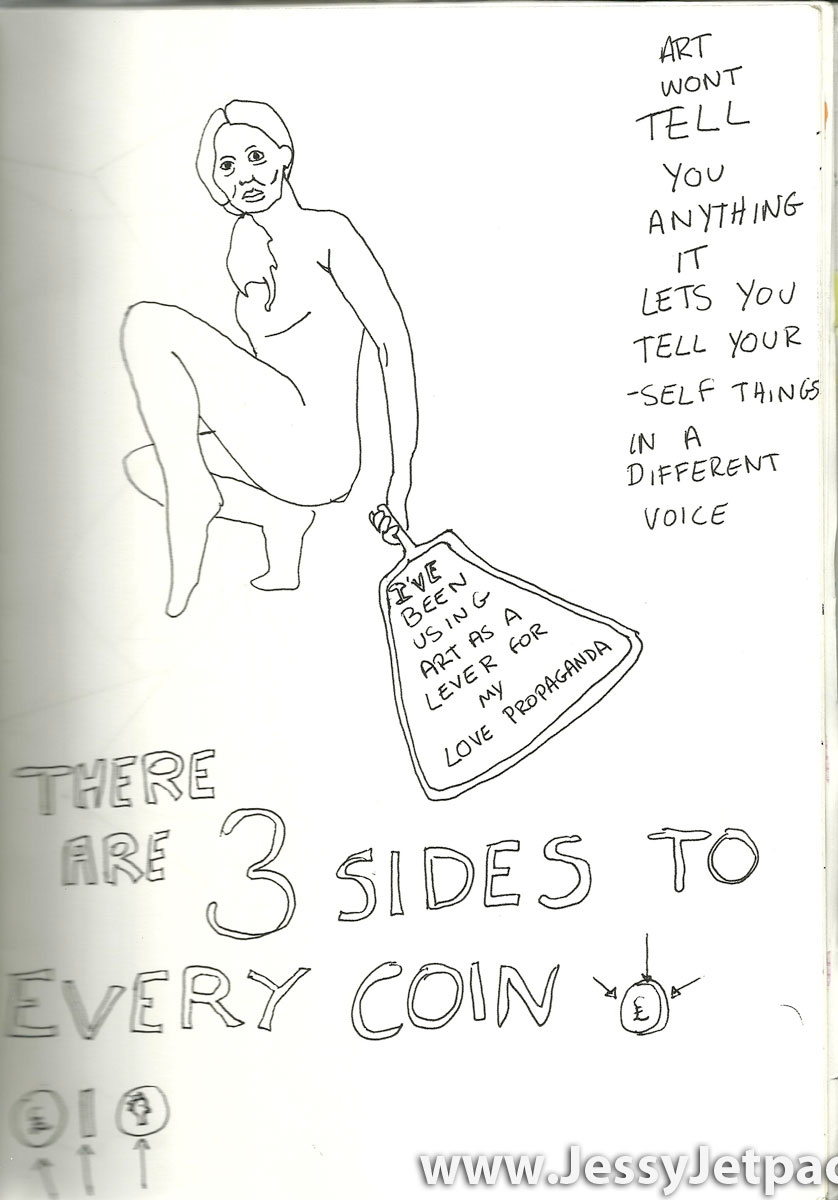 ART
WONT
TELL
YOU
ANYTHING
IT
LETS YOU
TELL YOUR
-SELF THINGS
IN A
DIFFERENT
VOICE
I'VE
BEEN
USING
ART AS A
LEVER FOR
MY
LOVE PROPAGANDA
THERE
ARE 3 SIDES TO
EVERY COIN £
£
www.JessyJetpac